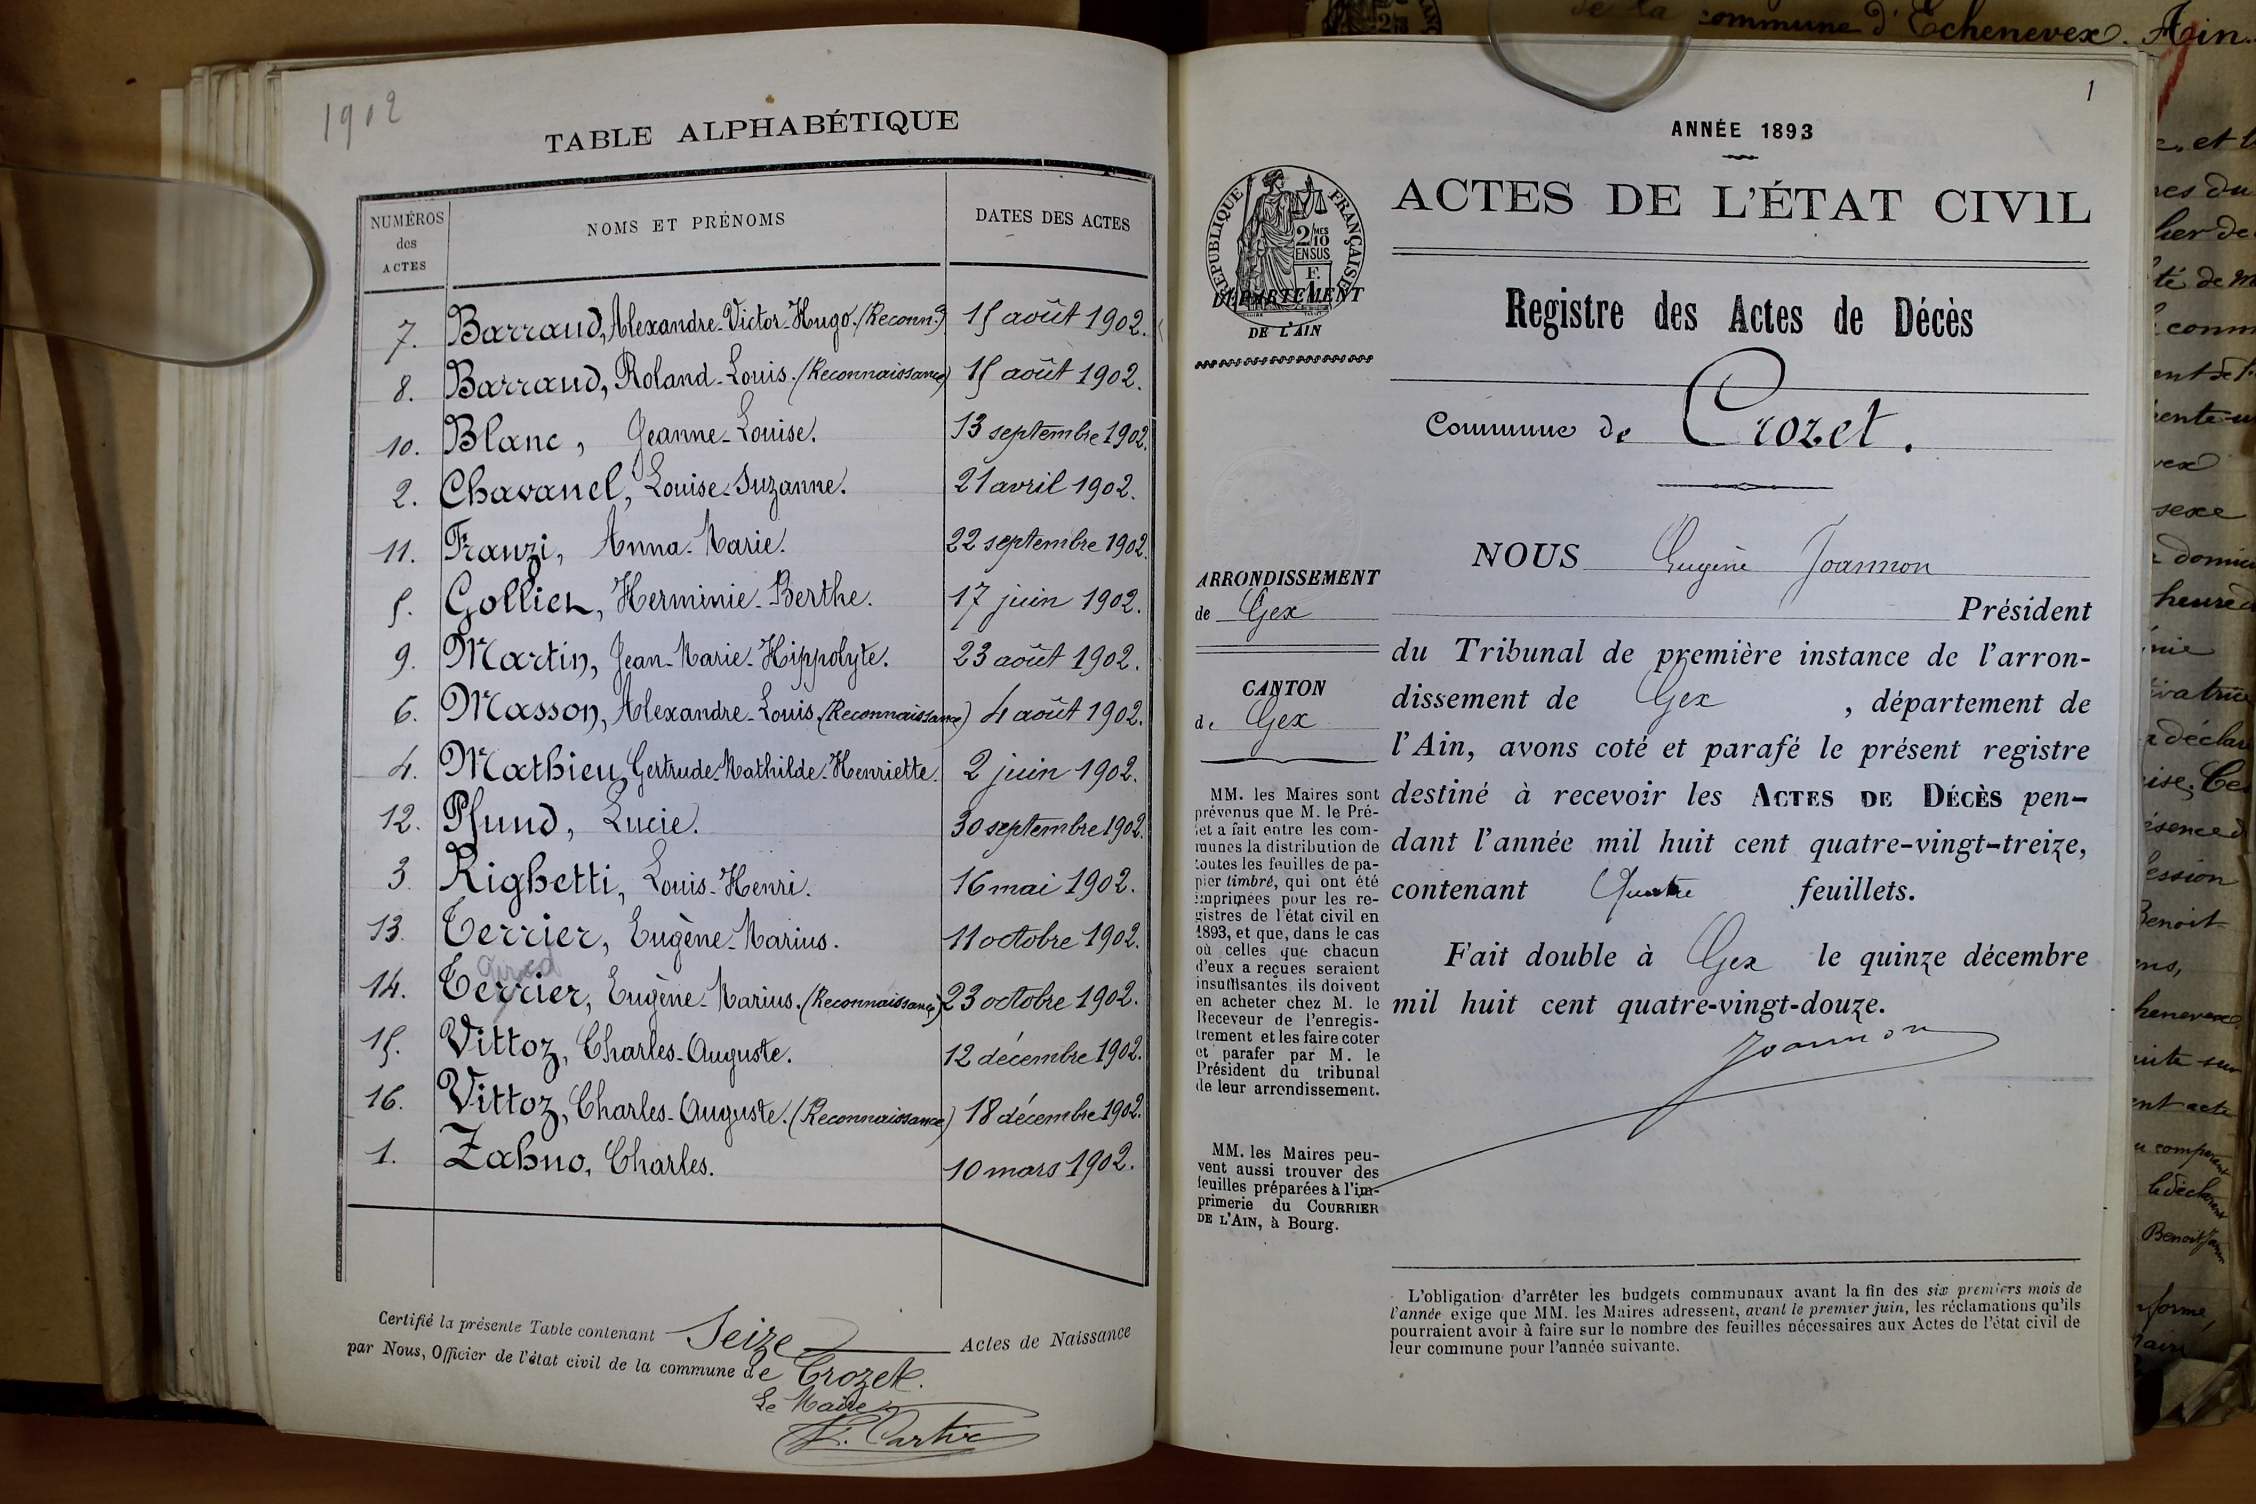 1902
TABLE ALPHABÉTIQUE
NUMÉROS des ACTES
NOMS ET PRÉNOMS
DATES DES ACTES
7. Barraud, Alexandre-Victor-Hugo. (Reconn.) 15 août 1902.
8. Barraud, Roland-Louis. (Reconnaissance) 15 août 1902.
10. Blanc, Jeanne-Louise. 13 septembre 1902.
2. Chavanel, Louise-Suzanne. 21 avril 1902.
11. Franzi, Anna-Marie. 22 septembre 1902.
5. Golliez, Herminie-Berthe. 17 juin 1902.
9. Martin, Jean-Marie-Hippolyte. 23 août 1902.
6. Masson, Alexandre-Louis. (Reconnaissance) 4 août 1902.
4. Mathieu, Gertrude-Mathilde-Henriette. 2 juin 1902.
12. Pfund, Lucie. 30 septembre 1902.
3. Righetti, Louis-Henri. 16 mai 1902.
13. Terrier, Eugène-Marius. 11 octobre 1902.
14. Terrier, Eugène-Marius. (Reconnaissance) 23 octobre 1902.
15. Vittoz, Charles-Auguste. 12 décembre 1902.
16. Vittoz, Charles-Auguste. (Reconnaissance) 18 décembre 1902.
1. Zahno, Charles. 10 mars 1902.
Certifié la présente Table contenant Seize Actes de Naissance
par Nous, Officier de l'état civil de la commune de Crozet.
Le Maire
de la commune d'Echenevex. Ain.
1
ANNÉE 1893
ACTES DE L'ÉTAT CIVIL
RÉPUBLIQUE FRANÇAISE
2/10
MES
EN SUS
DÉPARTEMENT
DE L'AIN
Registre des Actes de Décès
Commune de Crozet.
ARRONDISSEMENT
de Gex
CANTON
de Gex
MM. les Maires sont
prévenus que M. le Pré-
fet a fait entre les com-
munes la distribution de
toutes les feuilles de pa-
pier timbré, qui ont été
imprimées pour les re-
gistres de l'état civil en
1893, et que, dans le cas
où celles que chacun
d'eux a reçues seraient
insuffisantes, ils doivent
en acheter chez M. le
Receveur de l'enregis-
trement et les faire coter
et parafer par M. le
Président du tribunal
de leur arrondissement.
MM. les Maires peu-
vent aussi trouver des
feuilles préparées à l'im-
primerie du COURRIER
DE L'AIN, à Bourg.
NOUS Eugène Joannon
Président
du Tribunal de première instance de l'arron-
dissement de Gex, département de
l'Ain, avons coté et parafé le présent registre
destiné à recevoir les ACTES DE DÉCÈS pen-
dant l'année mil huit cent quatre-vingt-treize,
contenant Quatre feuillets.
Fait double à Gex le quinze décembre
mil huit cent quatre-vingt-douze.
Joannon
L'obligation d'arrêter les budgets communaux avant la fin des six premiers mois de
l'année exige que MM. les Maires adressent, avant le premier juin, les réclamations qu'ils
pourraient avoir à faire sur le nombre des feuilles nécessaires aux Actes de l'état civil de
leur commune pour l'année suivante.